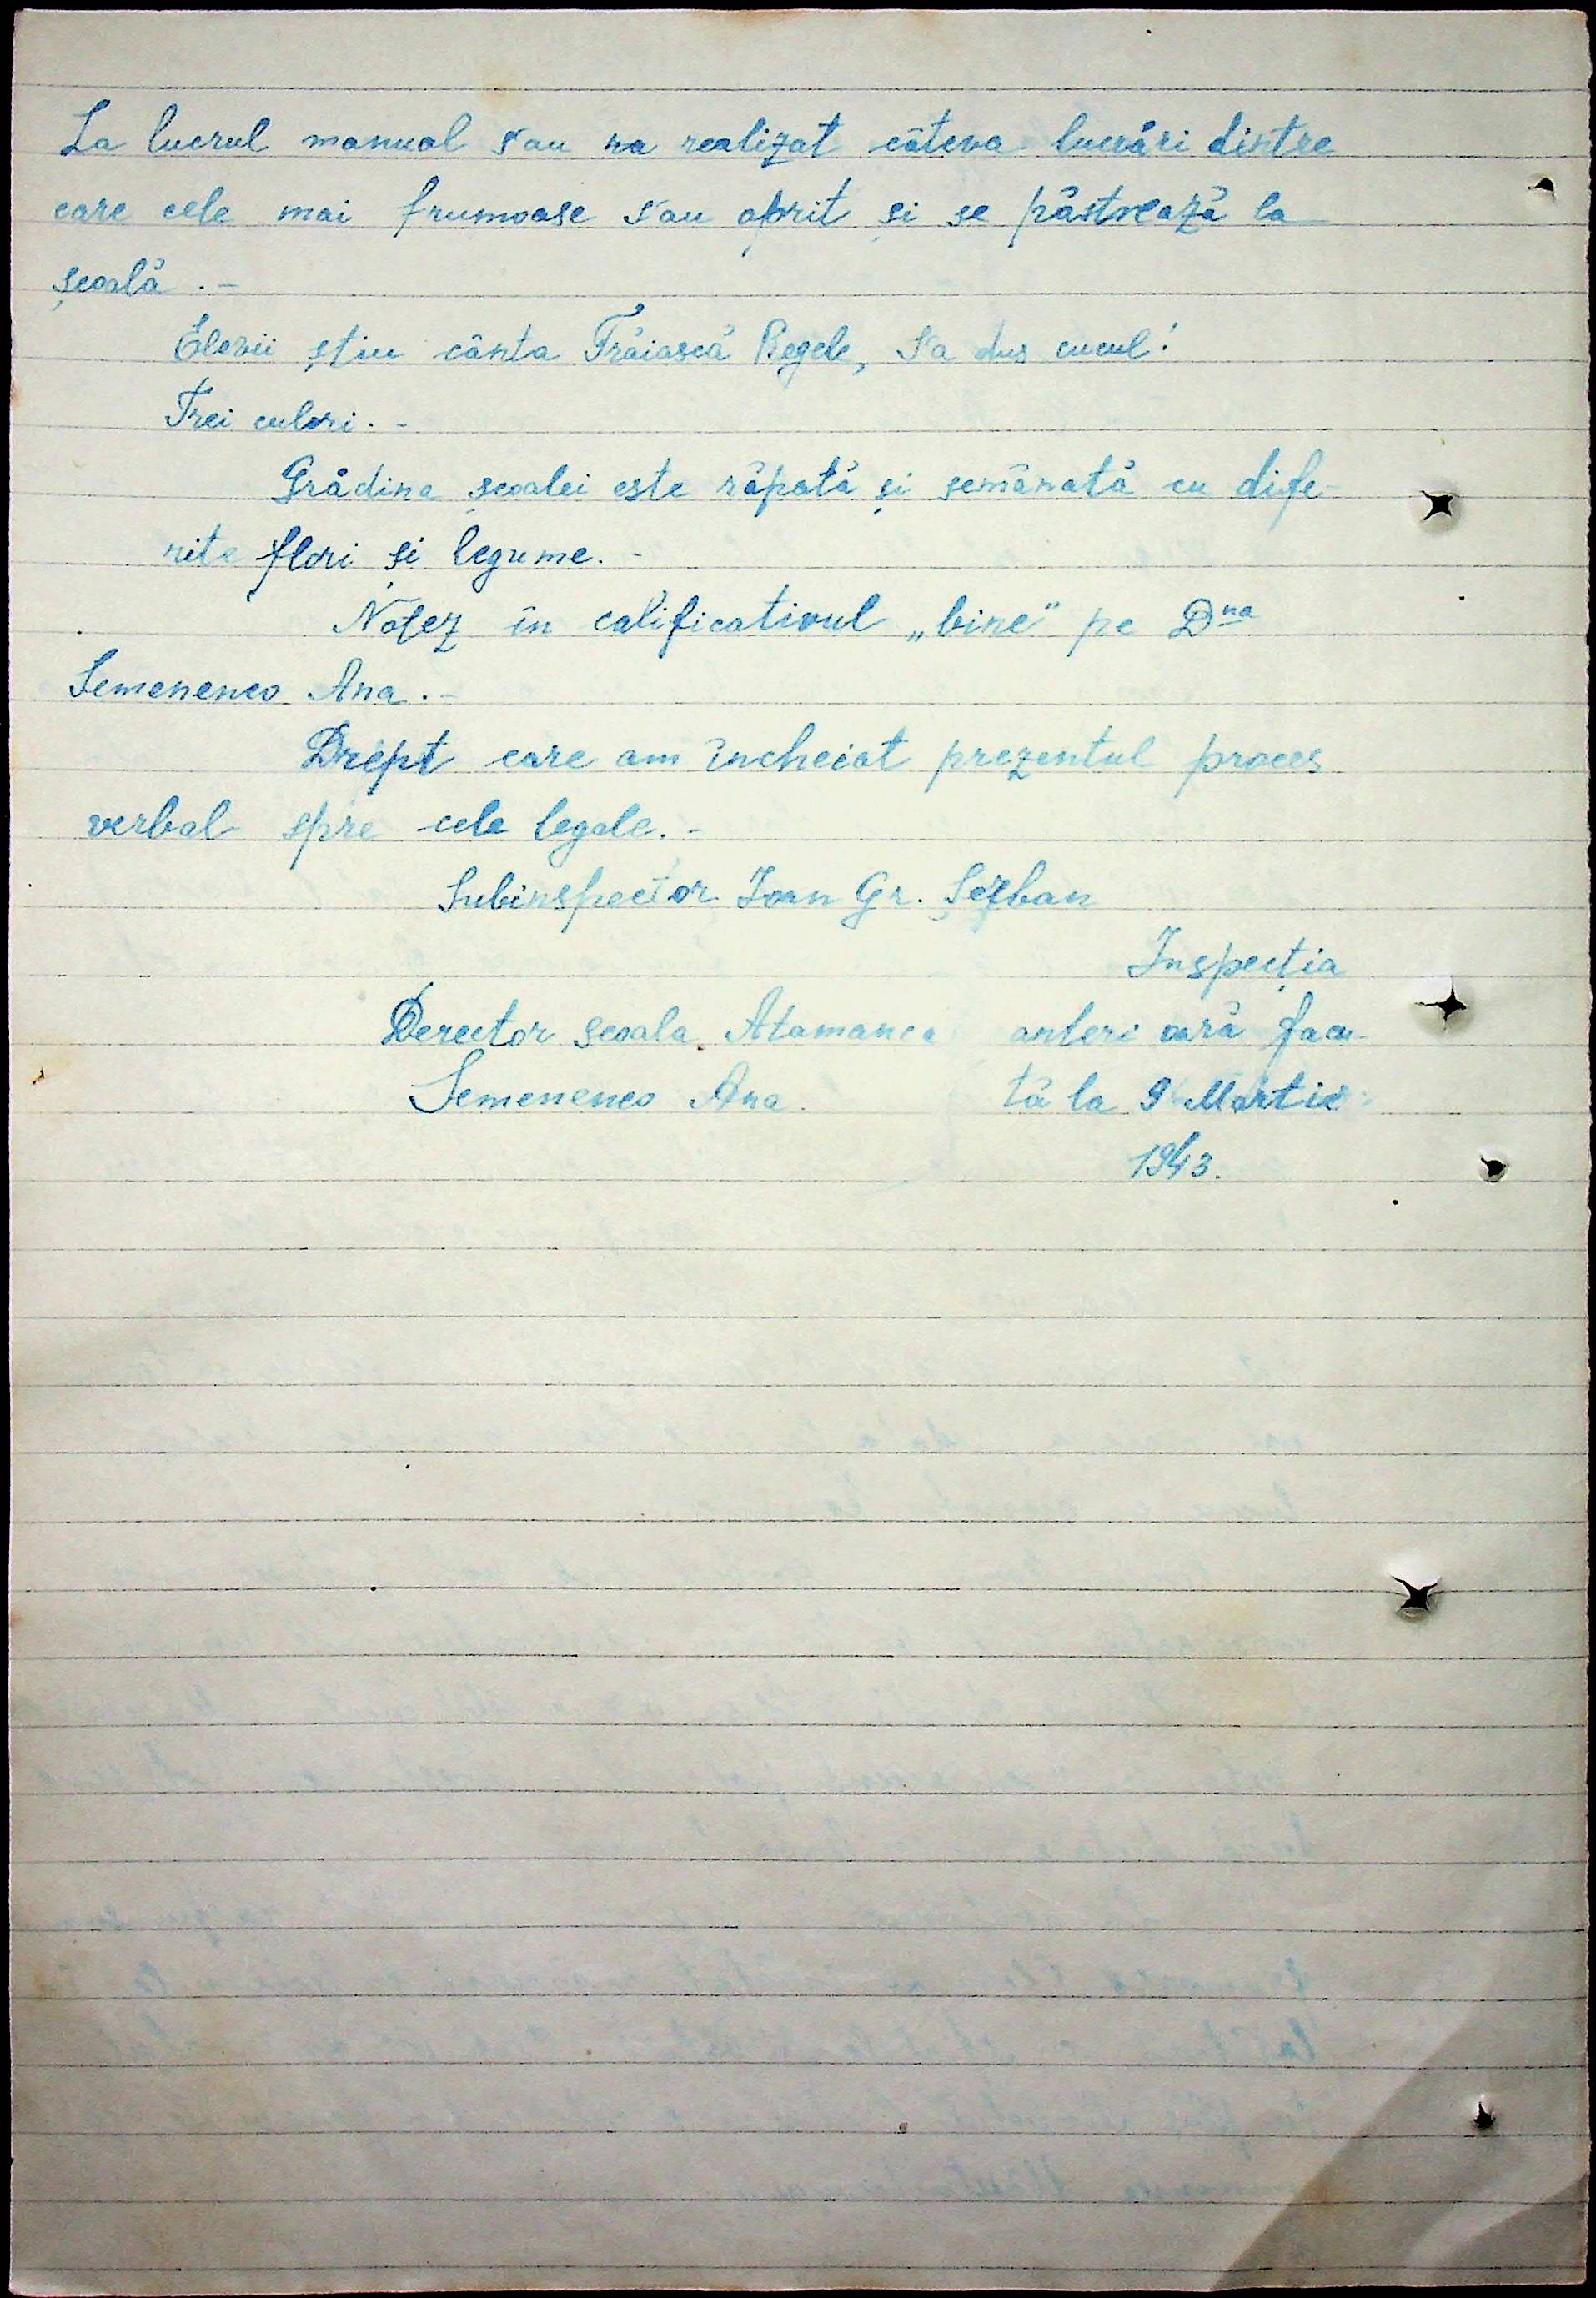 La lucrul manual s'au na realizat câteva lucrări dintre
care cele mai frumoase s'au oprit și se păstrează la
școală. -
Elevii știu cânta Trăiască Regele, S'a dus cucul!
Trei culori. -
Grădina școalei este răpată și semănată cu dife-
rite flori și legume. -
Notez în calificativul „bine" pe Dna
Semenenco Ana. -
Drept care am încheiat prezentul proces
verbal spre cele legale. -
Subinspector Ioan Gr. Șerban
Inspecția
Derector școala Atamanca anteri oară facu-
Semenenco Ana. tă la 9 Martie
1943.